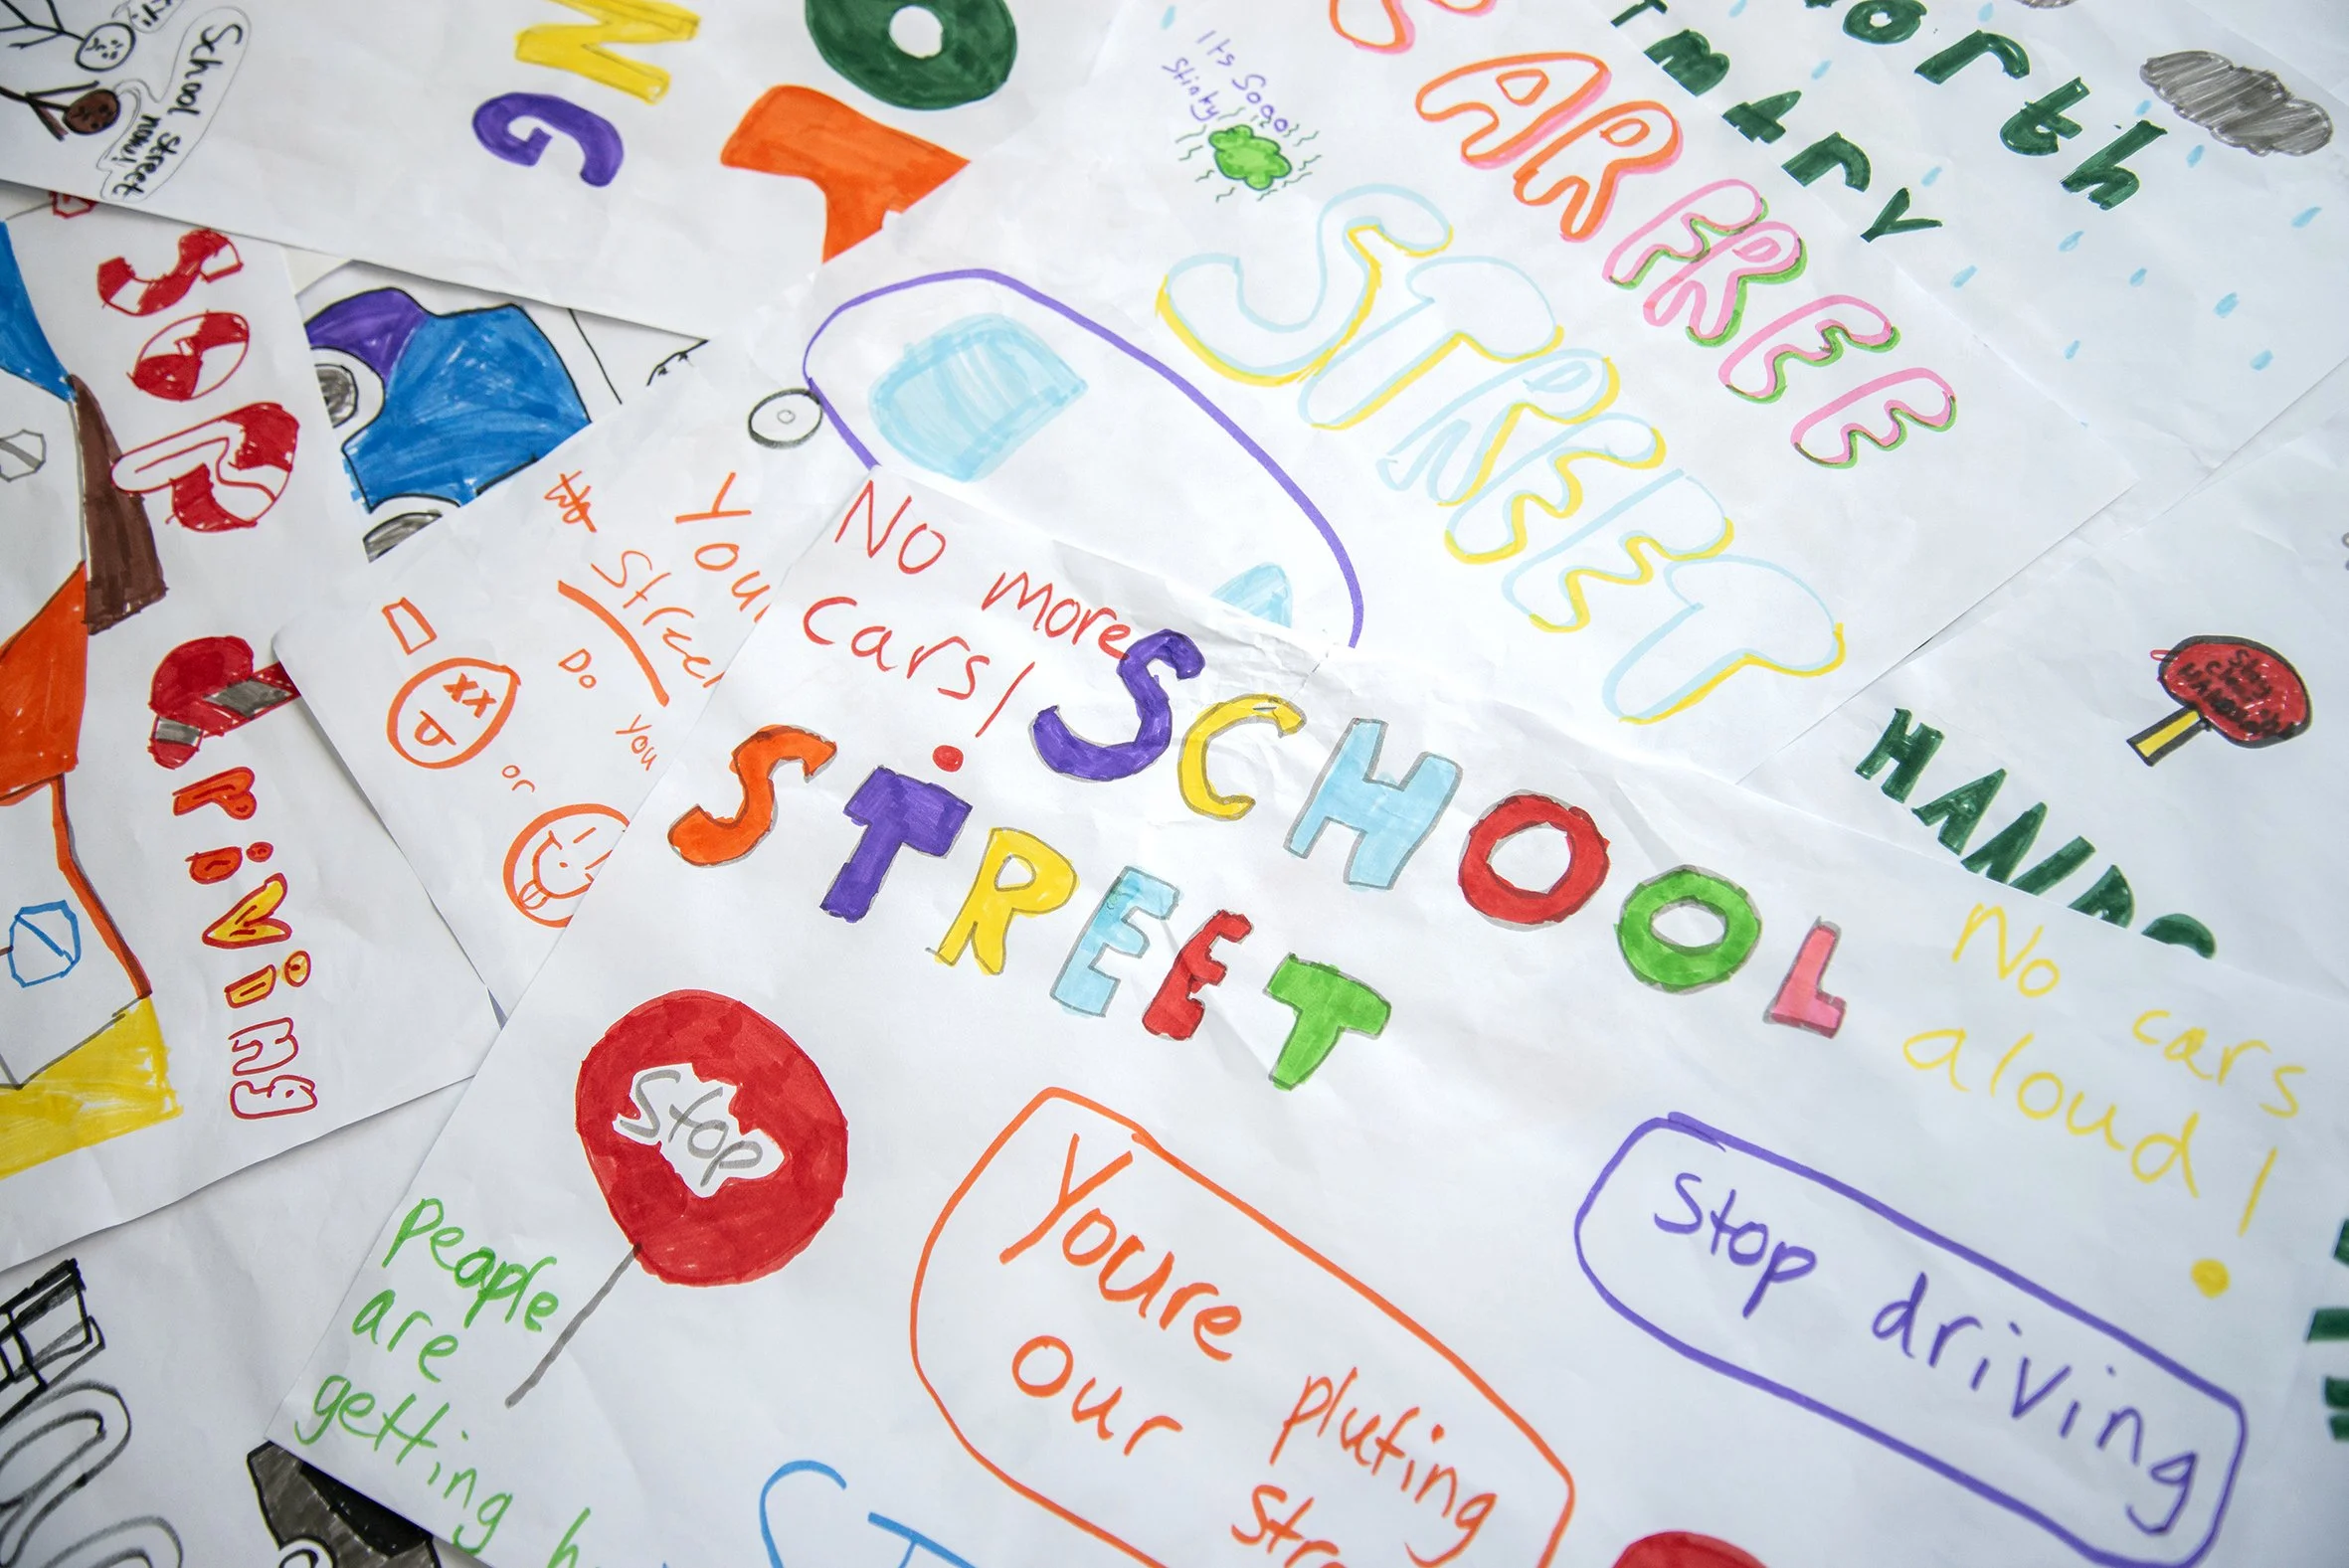 School street
now!
NG
O
Its Sooo
Stinky
CAR FREE
STREET
orth
mary
STOP
driving
Your
Stree
Do
You
or
No more
cars!
SCHOOL
STREET
Stop
HANDS
No cars
aloud!
Stop driving
Youre pluting
our stre
people
are
getting h